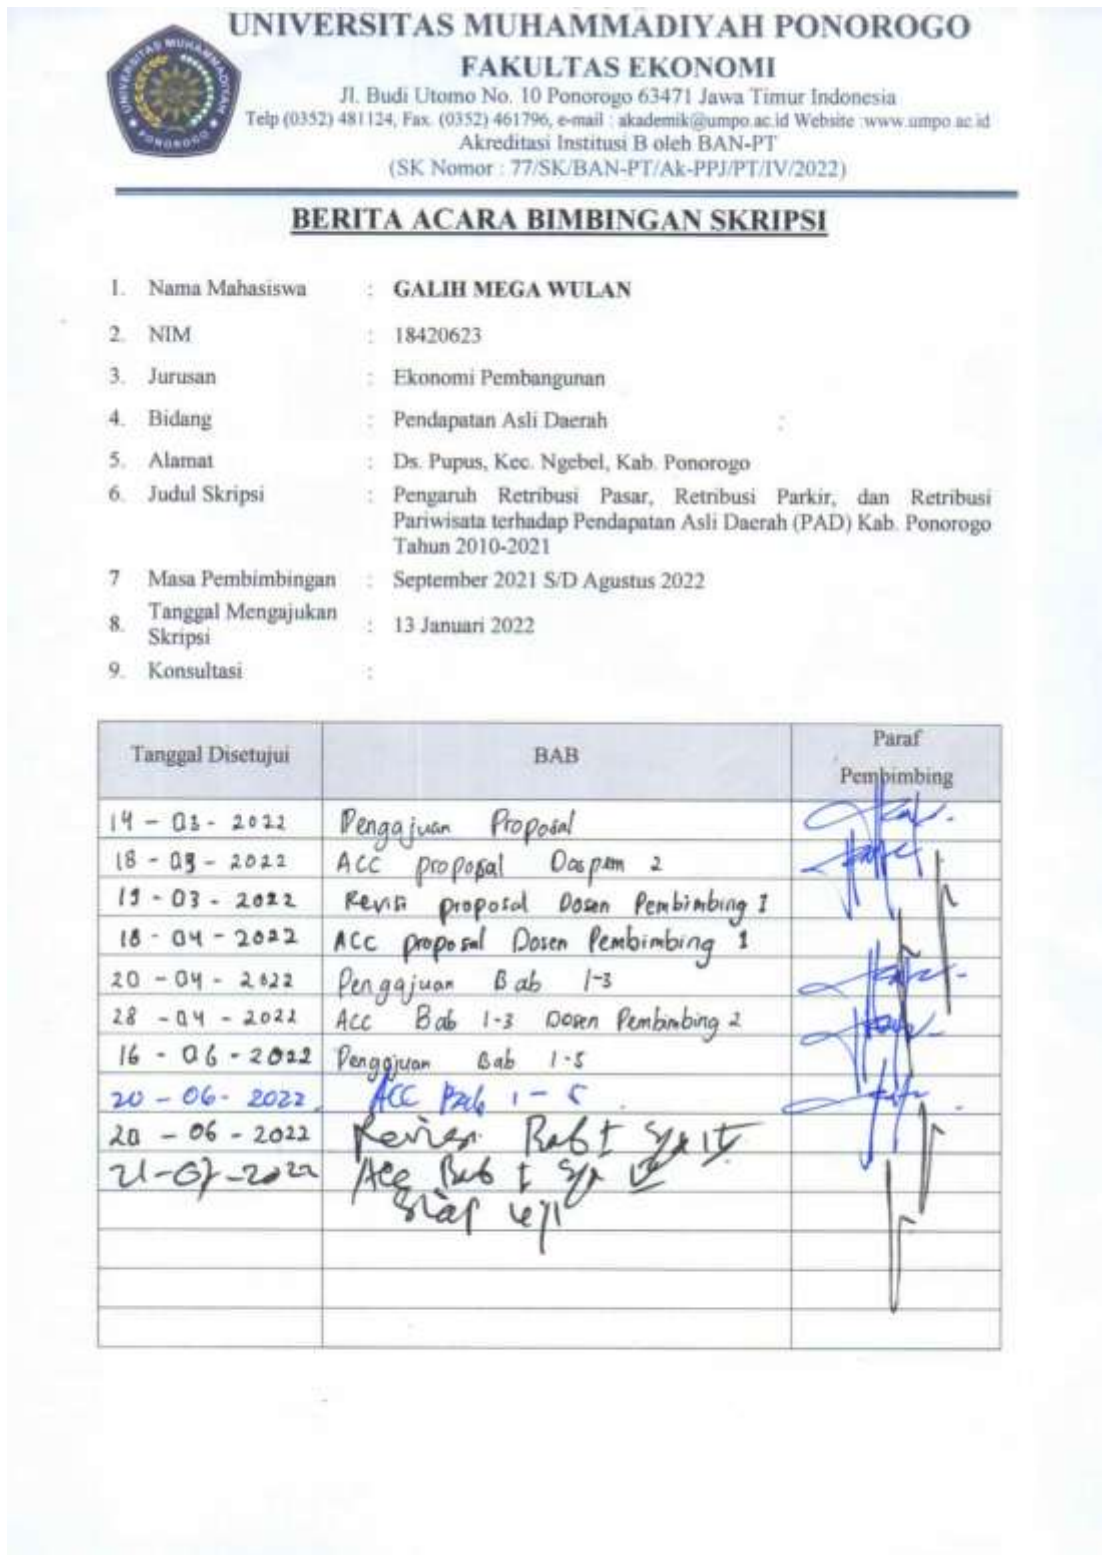 UNIVERSITAS MUHAMMADIYAH PONOROGO
FAKULTAS EKONOMI
Jl. Budi Utomo No. 10 Ponorogo 63471 Jawa Timur Indonesia
Telp (0352) 481124, Fax. (0352) 461796, e-mail : akademik@umpo.ac.id Website :www.umpo.ac.id
Akreditasi Institusi B oleh BAN-PT
(SK Nomor : 77/SK/BAN-PT/Ak-PPJ/PT/IV/2022)
UNIVERSITAS MUHAMMADIYAH PONOROGO
BERITA ACARA BIMBINGAN SKRIPSI
1. Nama Mahasiswa : GALIH MEGA WULAN
2. NIM : 18420623
3. Jurusan : Ekonomi Pembangunan
4. Bidang : Pendapatan Asli Daerah :
5. Alamat : Ds. Pupus, Kec. Ngebel, Kab. Ponorogo
6. Judul Skripsi : Pengaruh Retribusi Pasar, Retribusi Parkir, dan Retribusi
Pariwisata terhadap Pendapatan Asli Daerah (PAD) Kab. Ponorogo
Tahun 2010-2021
7 Masa Pembimbingan : September 2021 S/D Agustus 2022
8. Tanggal Mengajukan
Skripsi : 13 Januari 2022
9. Konsultasi :
Tanggal Disetujui BAB Paraf
Pembimbing
14 - 03 - 2022 Pengajuan Proposal
18 - 03 - 2022 ACC proposal Dospem 2
19 - 03 - 2022 Revisi proposal Dosen Pembimbing 1
18 - 04 - 2022 ACC proposal Dosen Pembimbing 1
20 - 04 - 2022 Pengajuan Bab 1-3
28 - 04 - 2022 ACC Bab 1-3 Dosen Pembimbing 2
16 - 06 - 2022 Pengajuan Bab 1-5
20 - 06 - 2022 ACC Bab 1 - 5
20 - 06 - 2022 Revisi Bab I
21-07-2022 Acc Bab I
Siap uji